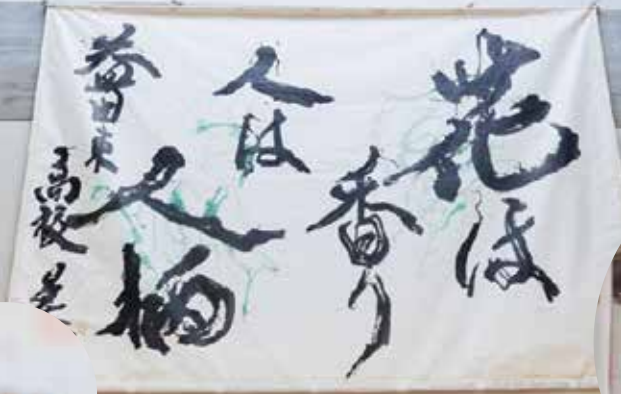 花は
香り
人は
人柄
益田東
高校